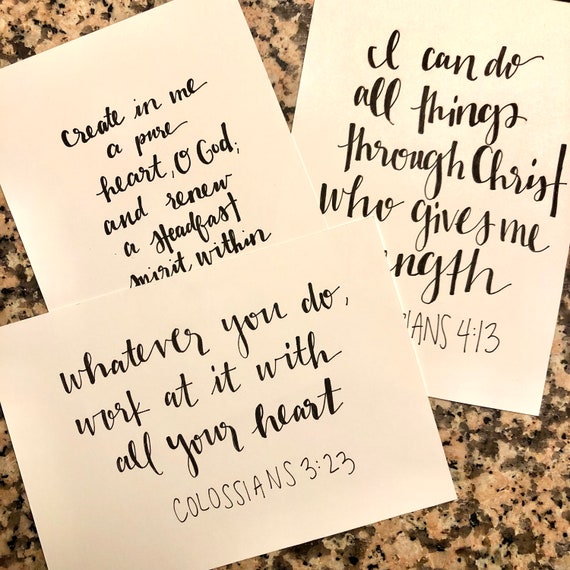 create in me
a pure
heart, O God,
and renew
a steadfast
spirit within
I can do
all things
through Christ
who gives me
ngth
IANS 4:13
whatever you do,
work at it with
all your heart
COLOSSIANS 3:23